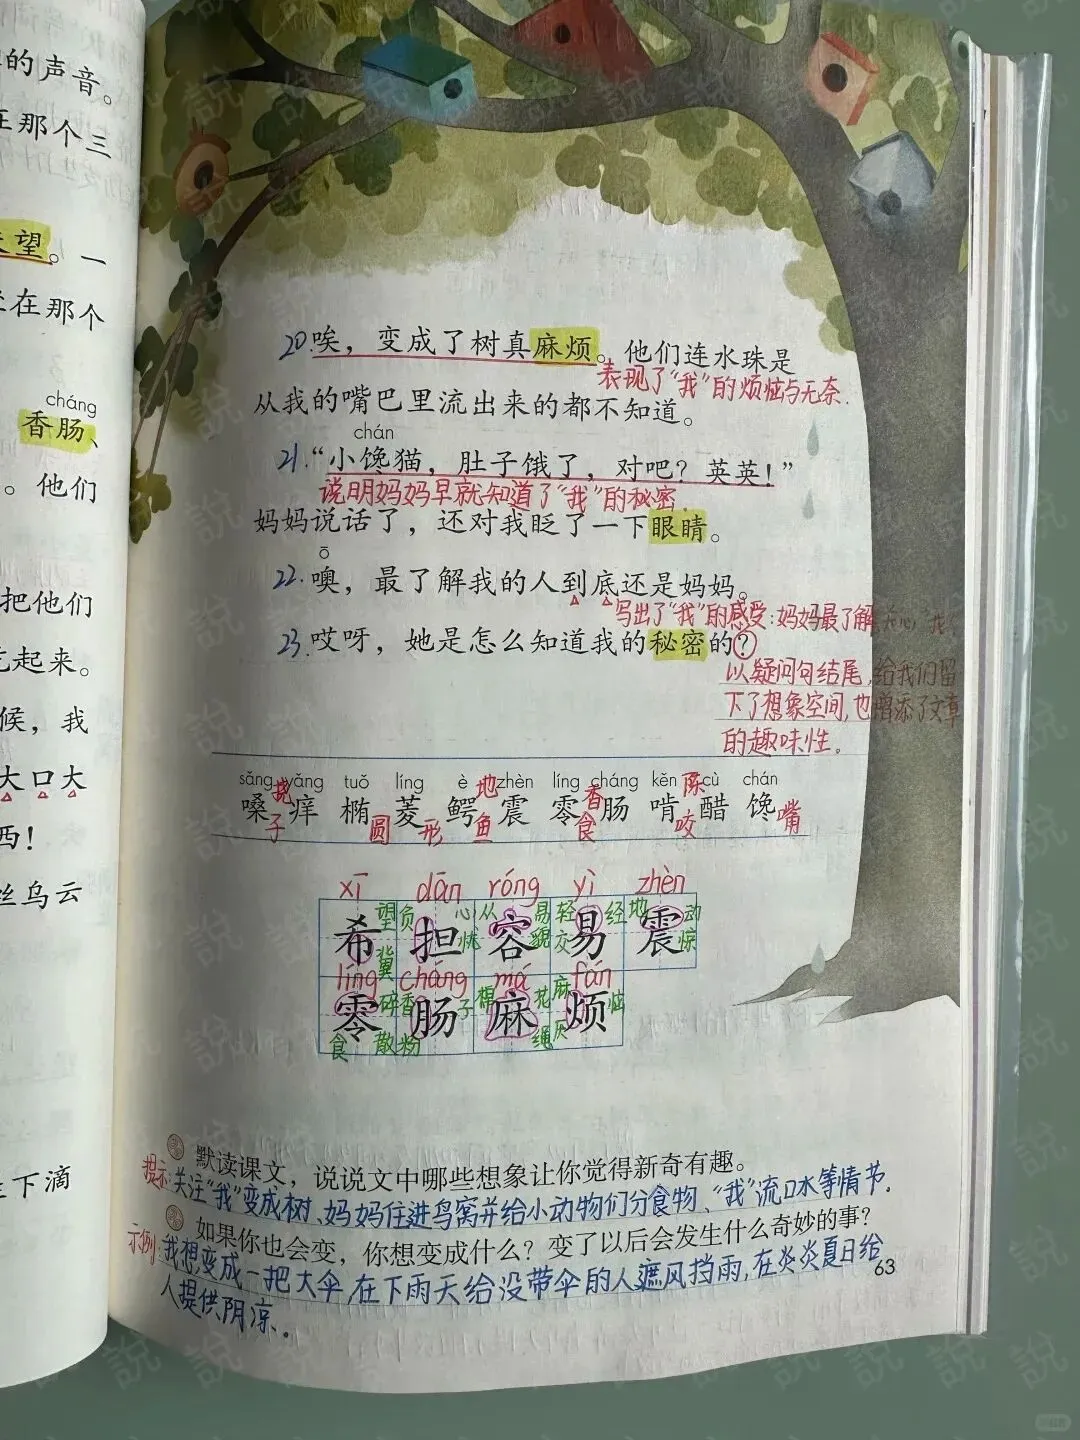 的声音。
在那个三
望。一
在那个
cháng
香肠、
。他们
把他们
起来。
候，我
大口大
西！
丝乌云
下滴
20.唉，变成了树真麻烦。他们连水珠是
表现了“我”的烦恼与无奈.
从我的嘴巴里流出来的都不知道。
chán
21.“小馋猫，肚子饿了，对吧？英英！”
说明妈妈早就知道了“我”的秘密.
妈妈说话了，还对我眨了一下眼睛。
ō
22.噢，最了解我的人到底还是妈妈。
写出了“我”的感受：妈妈最了解
23.哎呀，她是怎么知道我的秘密的？
以疑问句结尾,给我们留
下了想象空间,也增添了文章
的趣味性.
sǎng yǎng tuǒ líng è zhèn líng cháng kěn cù chán
嗓 痒 椭 菱 鳄 震 零 肠 啃 醋 馋
子 挠 圆 形 鱼 地 食 香 咬 陈 嘴
xī dān róng yì zhèn
希 担 容 易 震
望 冀 负 心 忧 从 易 貌 轻 交 经 地 动 惊
líng cháng má fán
零 肠 麻 烦
食 碎 散 香 粉 子 棉 花 绳 麻 厌 恼
默读课文，说说文中哪些想象让你觉得新奇有趣。
提示:关注“我”变成树、妈妈住进鸟窝并给小动物们分食物、“我”流口水等情节.
如果你也会变，你想变成什么？变了以后会发生什么奇妙的事？
示例:我想变成一把大伞,在下雨天给没带伞的人遮风挡雨,在炎炎夏日给
人提供阴凉.
63